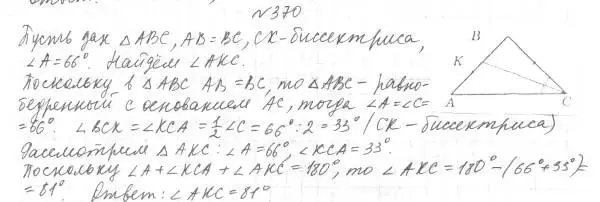 №370
Пусть дан △ABC, AB=BC, CK-биссектриса,
∠A=66°. Найдём ∠AKC.
Поскольку в △ABC AB=BC, то △ABC – равно-
бедренный с основанием AC, тогда ∠A=∠C=
=66°. ∠BCK=∠KCA=1/2∠C=66°:2=33° (CK-биссектриса)
Рассмотрим △AKC: ∠A=66°, ∠KCA=33°.
Поскольку ∠A+∠KCA+∠AKC=180°, то ∠AKC=180°-(66°+33°)=
=81°. Ответ: ∠AKC=81°
B
K
A
C